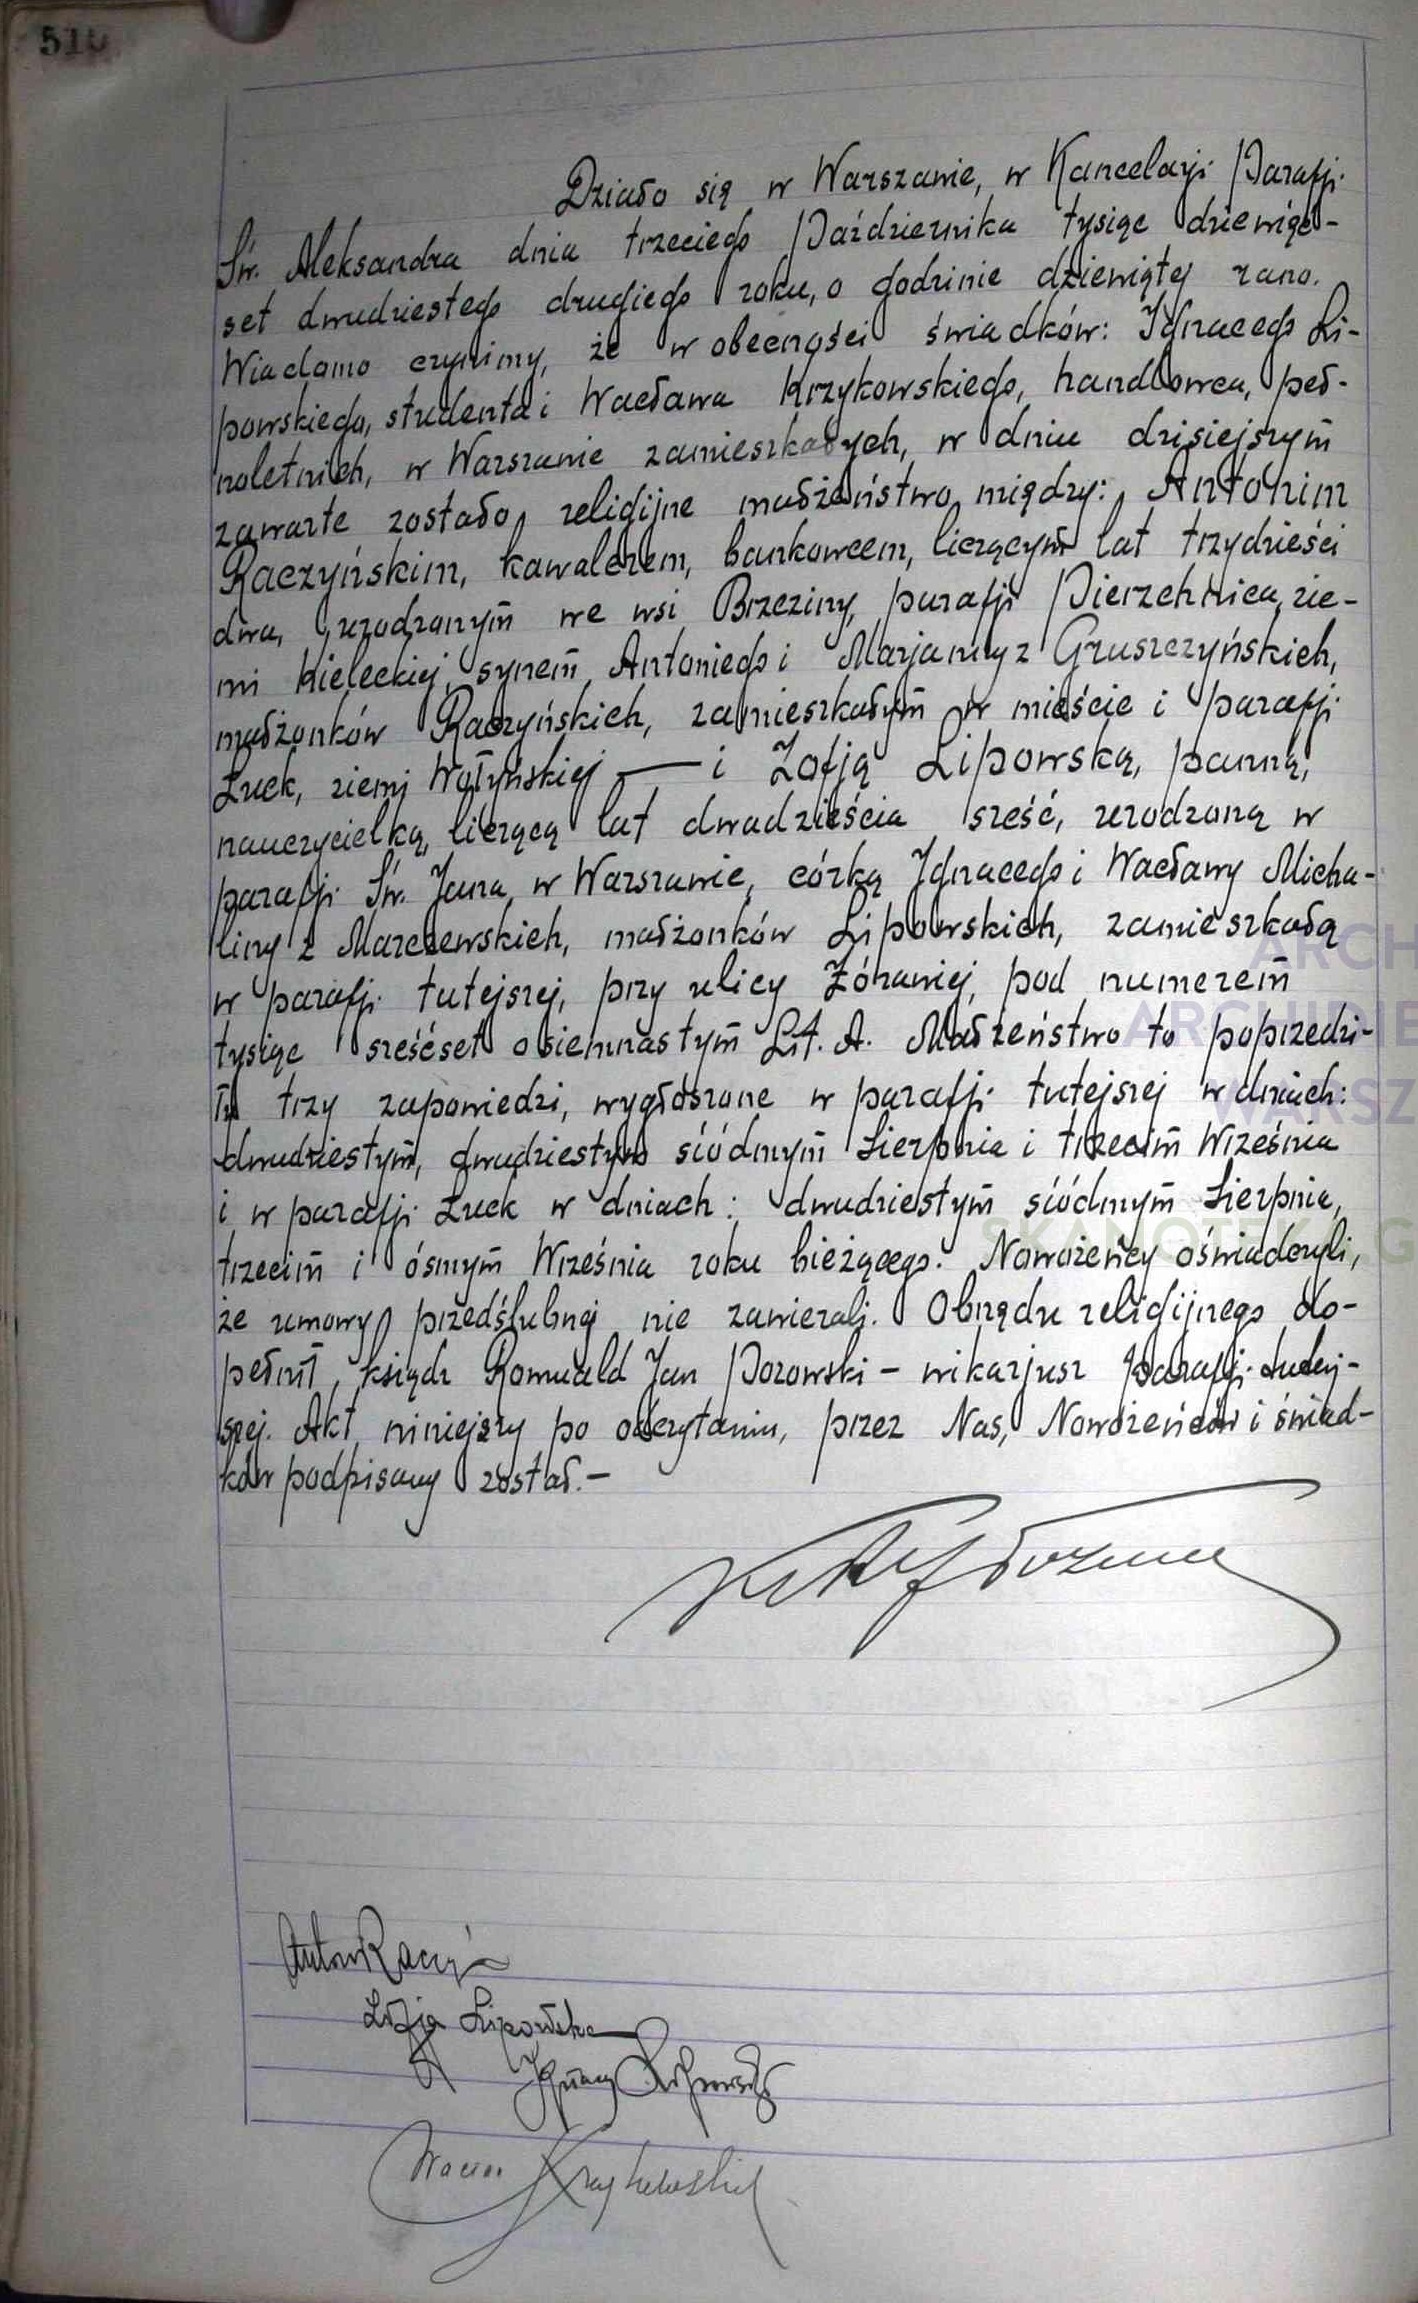 Działo się w Warszawie, w Kancelaryi Parafji
Św. Aleksandra dnia trzeciego Października tysiąc dziewięć-
set dwudziestego drugiego roku, o godzinie dziewiątej rano.
Wiadomo czynimy, że w obecności świadków: Ignacego Li-
powskiego, studenta i Wacława Krzykowskiego, handlowca, peł-
noletnich, w Warszawie zamieszkałych, w dniu dzisiejszym
zawarte zostało religijne małżeństwo między: Antonim
Raczyńskim, kawalerem, bankowcem, liczącym lat trzydzieści
dwa, urodzonym we wsi Brzeziny, parafji Pierzchnica, zie-
mi Kieleckiej, synem Antoniego i Marjanny z Gruszczyńskich,
małżonków Raczyńskich, zamieszkałym w mieście i parafji
Łuck, ziemi Wołyńskiej — i Zofją Lipowską, panną,
nauczycielką, liczącą lat dwadzieścia sześć, urodzoną w
parafji Św. Jana w Warszawie, córką Ignacego i Wacławy Micha-
liny z Marczewskich, małżonków Lipowskich, zamieszkałą
w parafji tutejszej, przy ulicy Żórawiej, pod numerem
tysiąc sześćset osiemnastym Lit. A. Małżeństwo to poprzedzi-
ły trzy zapowiedzi, wygłoszone w parafji tutejszej w dniach:
dwudziestym, dwudziestym siódmym Sierpnia i trzecim Września
i w parafji Łuck w dniach: dwudziestym siódmym Sierpnia,
trzecim i ósmym Września roku bieżącego. Nowożeńcy oświadczyli,
że umowy przedślubnej nie zawierali. Obrzędu religijnego do-
pełnił ksiądz Romuald Jan Porowski – wikarjusz parafji tutej-
szej. Akt niniejszy po odczytaniu, przez Nas, Nowożeńców i świad-
ków podpisany został.–
Zofja Lipowska
Ignacy Lipowski
Wacław Krzykowski
ARCH
ARCHIDIE
WARSZ
SKANOTEKA G